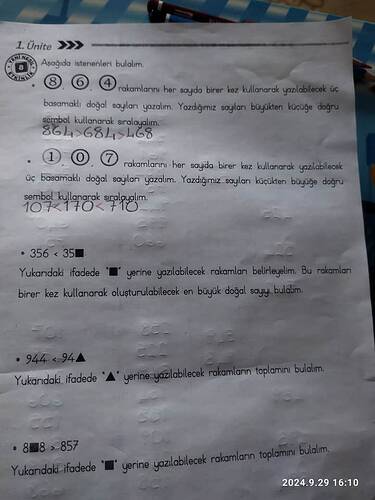 1. Ünite
YENİ NESİL
8
ETKİNLİK
Aşağıda istenenleri bulalım.
• 8, 6, 4 rakamlarını her sayıda birer kez kullanarak yazılabilecek üç
basamaklı doğal sayıları yazalım. Yazdığımız sayıları büyükten küçüğe doğru
sembol kullanarak sıralayalım.
864>684>468
• 1, 0, 7 rakamlarını her sayıda birer kez kullanarak yazılabilecek
üç basamaklı doğal sayıları yazalım. Yazdığımız sayıları küçükten büyüğe doğru
sembol kullanarak sıralayalım.
107<170<710
• 356 < 35■
Yukarıdaki ifadede "■" yerine yazılabilecek rakamları belirleyelim. Bu rakamları
birer kez kullanarak oluşturulabilecek en büyük doğal sayıyı bulalım.
• 944 < 94▲
Yukarıdaki ifadede "▲" yerine yazılabilecek rakamların toplamını bulalım.
• 8■8 > 857
Yukarıdaki ifadede "■" yerine yazılabilecek rakamların toplamını bulalım.
2024.9.29 16:10